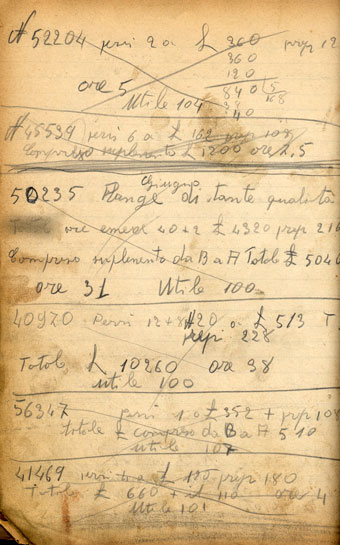 N 52204 persi 2 a £ 360 prep 12
360
120
ore 5 840 5
168
Utile 104 40
N 45539 persi 6 a £ 162 prep 108
Compreso suplemento £ 1200 ore 2,5
Giugno
50235 Flange di tante qualità
ore 40+2 £ 4320 prep 216
Compreso suplemento da B a A Totale £ 5040
ore 31 Utile 100
40970 Persi 12+8 #20 a £ 513 T
prep 228
Totale £ 10260 ore 38
utile 100
56347 persi 10 £ 352 + prep 108
totale £ compreso da B a A 510
utile 107
41469 persi £ prep 180
Totale £ 660 + 110 ore 4
Utile 101